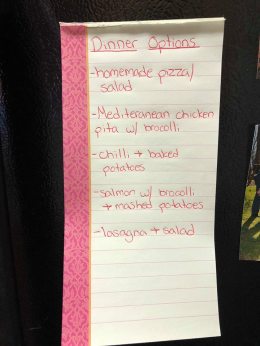 Dinner Options
-homemade pizza/
salad
-Mediteranean chicken
pita w/ brocolli
-chilli + baked
potatoes
-salmon w/ brocolli
+ mashed potatoes
-lasagna + salad